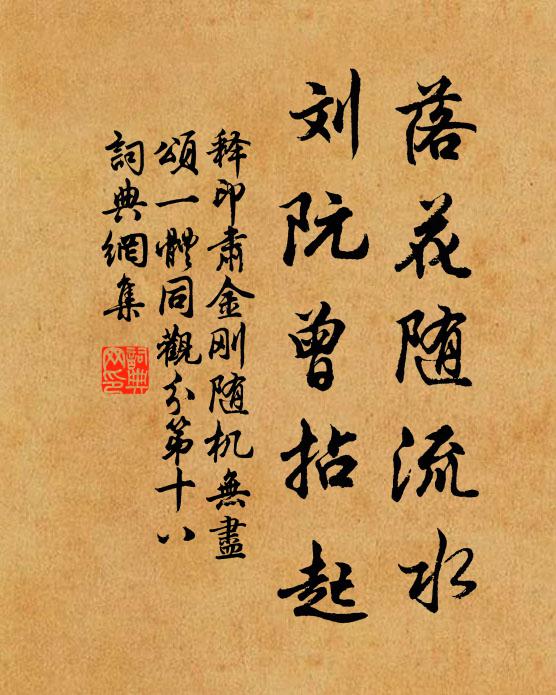 落花随流水
刘阮曾拈起
释印肃金刚随机無盡
頌一體同觀分第十八
詞典網集
詞典网印